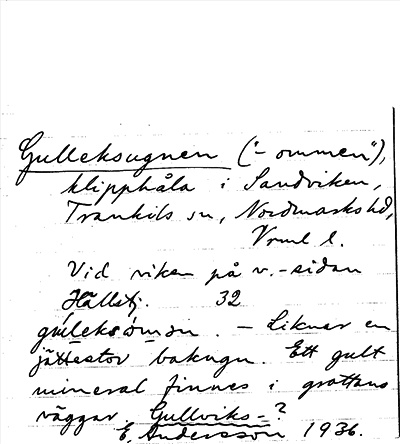 Gulleksugnen ("- ommen"),
klipphåla i Sandviken,
Trankils sn, Nordmarks hd,
Vrml l.
Vid viken på v.-sidan
Hällstj. 32
gúlleksòmən. – Liknar en
jättestor bakugn. Ett gult
mineral finnes i grottans
väggar. Gullviks-?
E. Andersson 1936.